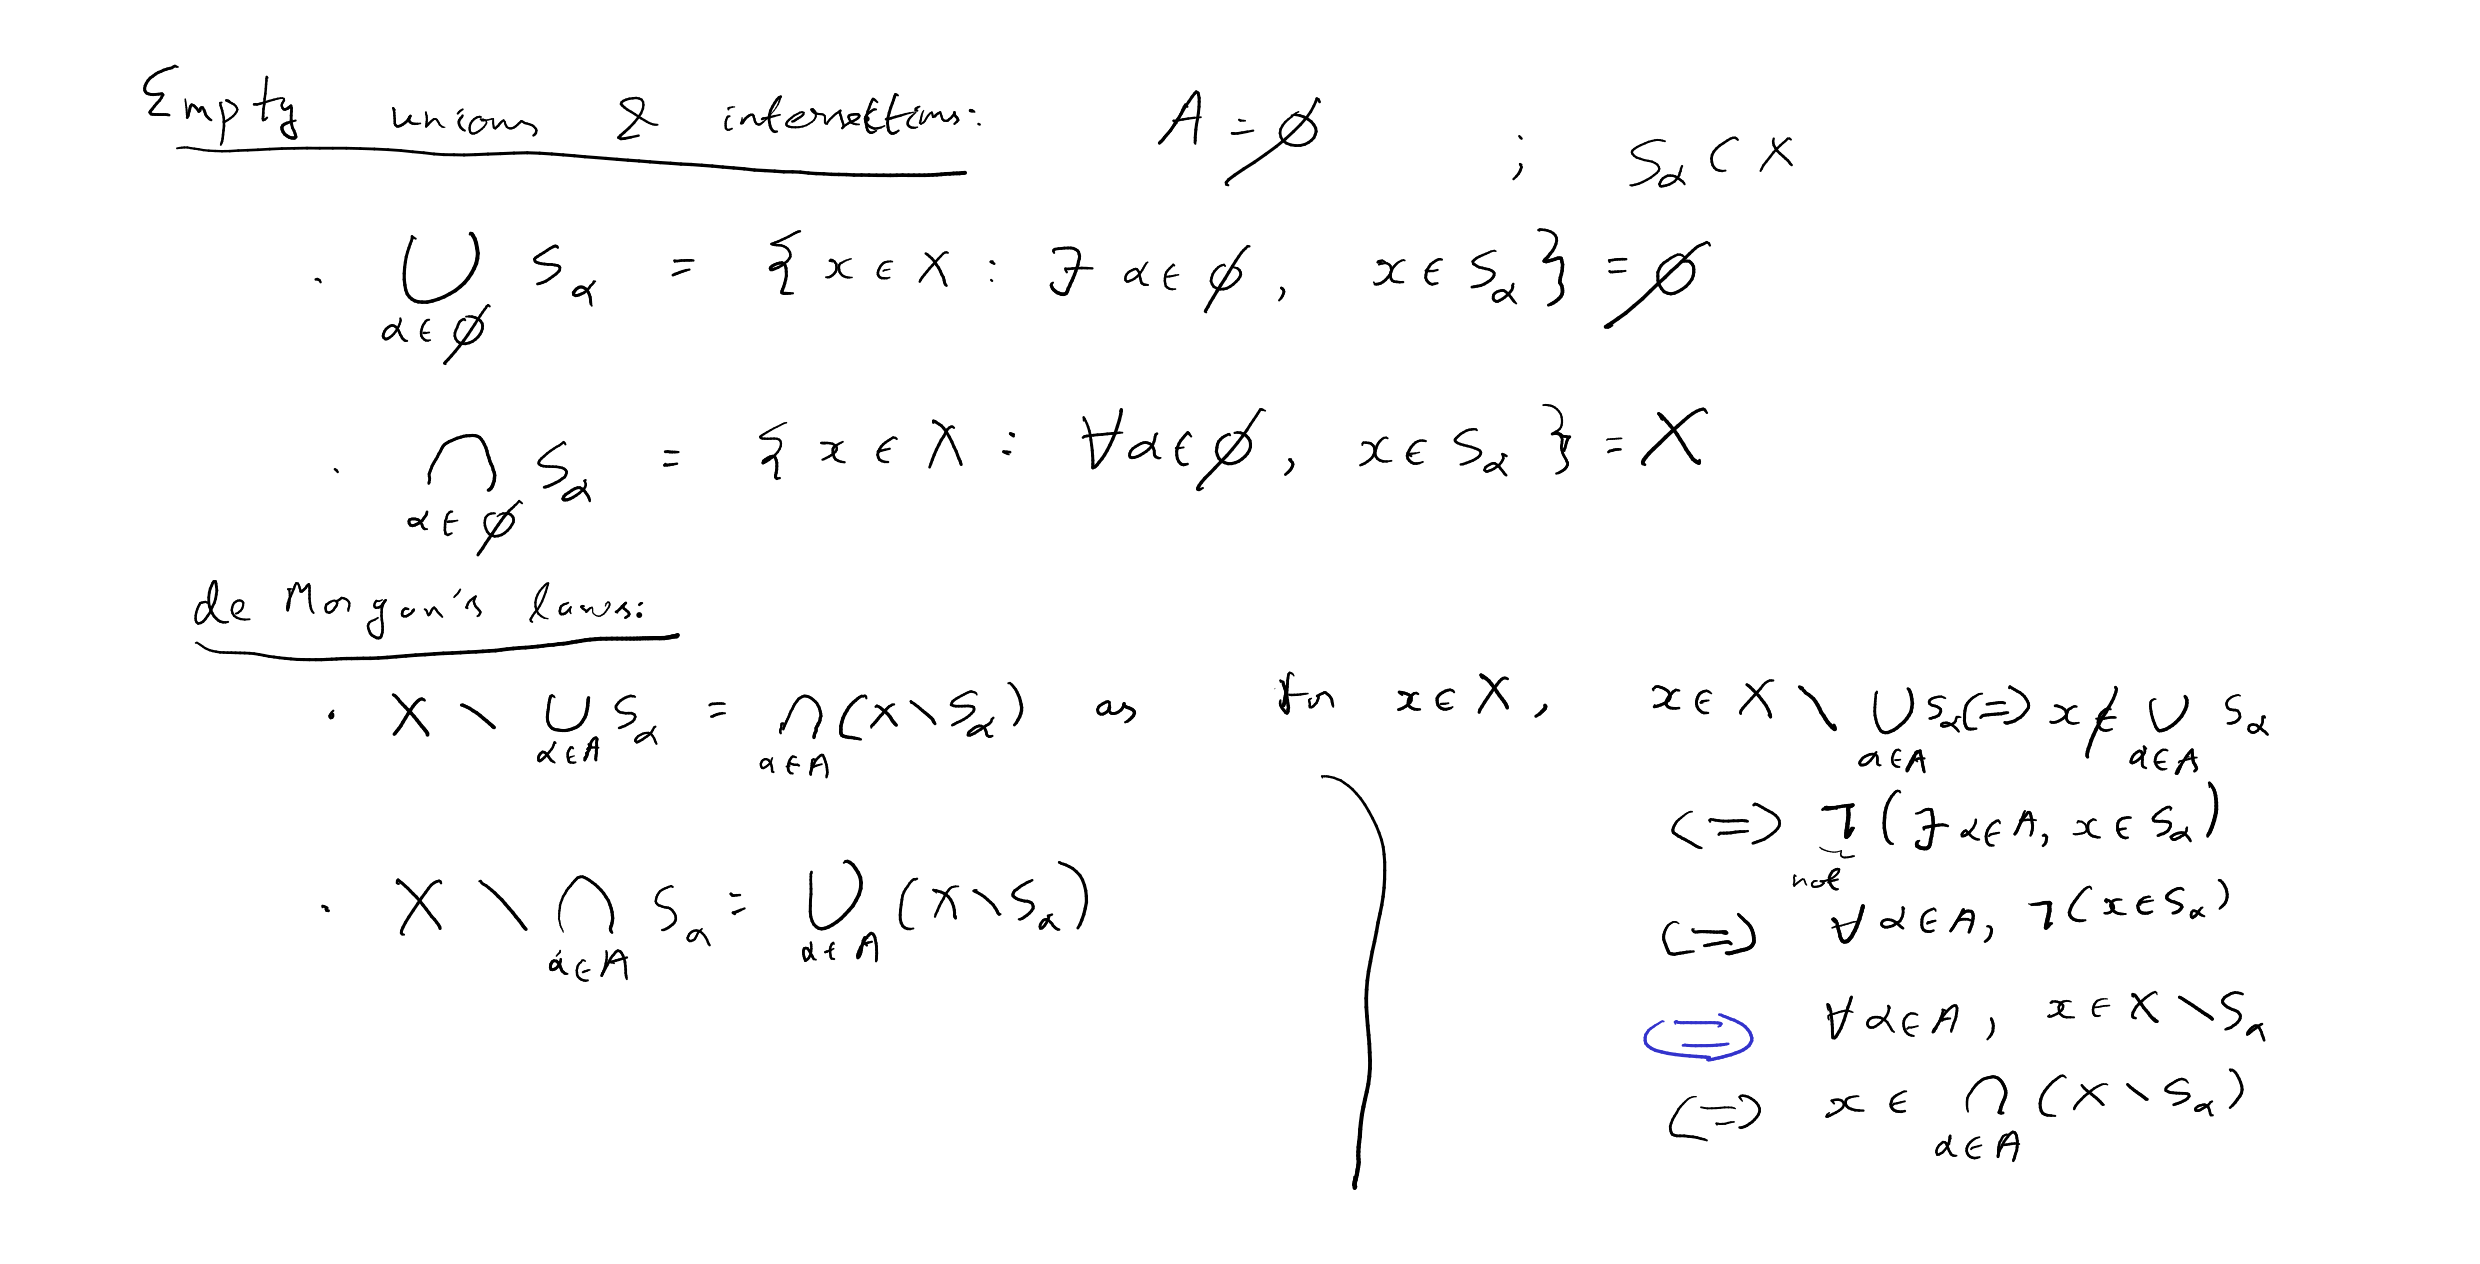 Empty unions & intersections: A = ∅ ; S_α ⊂ X
· ⋃_{α∈∅} S_α = {x ∈ X : ∃ α ∈ ∅, x ∈ S_α} = ∅
· ⋂_{α∈∅} S_α = {x ∈ X : ∀α∈∅, x ∈ S_α} = X
de Morgan's laws:
· X \ ⋃_{α∈A} S_α = ⋂_{α∈A} (X \ S_α) as for x ∈ X, x ∈ X \ ⋃_{α∈A} S_α <=> x ∉ ⋃_{α∈A} S_α
<=> ¬ (∃ α∈A, x ∈ S_α)
not
· X \ ⋂_{α∈A} S_α = ⋃_{α∈A} (X \ S_α)
<=> ∀ α∈A, ¬(x∈S_α)
<=> ∀ α∈A, x ∈ X \ S_α
<=> x ∈ ⋂_{α∈A} (X \ S_α)